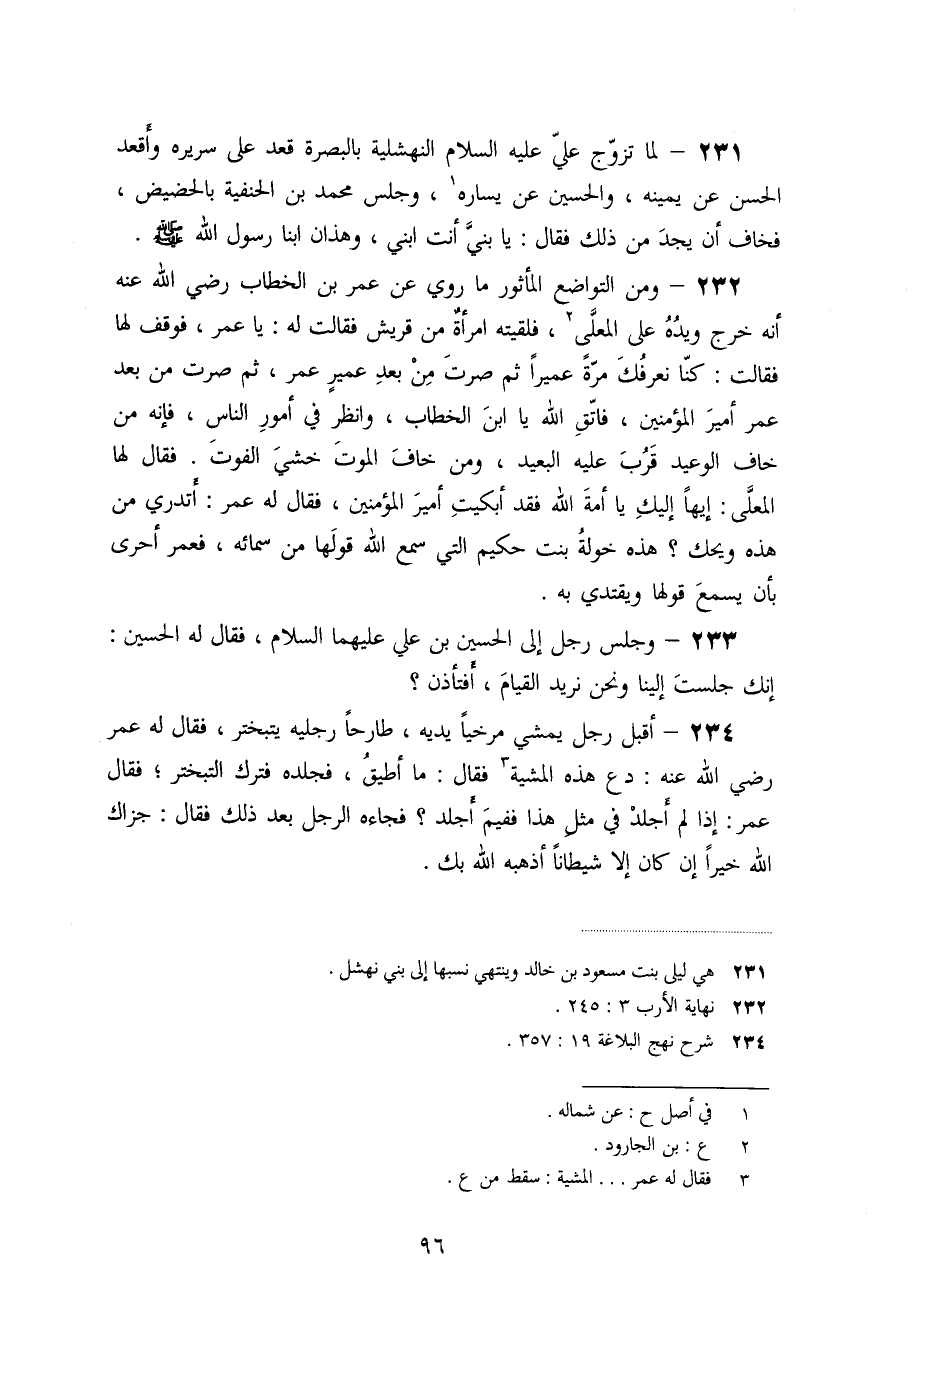 ٢٣١ – لما تزوّج عليّ عليه السلام النهشلية بالبصرة قعد على سريره وأَقعد
الحسن عن يمينه ، والحسين عن يساره١ ، وجلس محمد بن الحنفية بالحضيض ،
فخاف أن يجدَ من ذلك فقال : يا بنيَّ أنت ابني ، وهذان ابنا رسول الله ﷺ .
٢٣٢ – ومن التواضع المأثور ما روي عن عمر بن الخطاب رضي الله عنه
أنه خرج ويدُهُ على المعلَّى٢ ، فلقيته امرأةٌ من قريش فقالت له : يا عمر ، فوقف لها
فقالت : كنّا نعرفُكَ مرّةً عميراً ثم صرتَ مِنْ بعدِ عميرٍ عمر ، ثم صرت من بعد
عمر أميرَ المؤمنين ، فاتّقِ الله يا ابنَ الخطاب ، وانظر في أمورِ الناس ، فإنه من
خاف الوعيد قَرُبَ عليه البعيد ، ومن خافَ الموتَ خشيَ الفوتَ . فقال لها
المعلَّى : إيهاً إليكِ يا أمةَ الله فقد أبكيتِ أميرَ المؤمنين ، فقال له عمر : أَتدري من
هذه ويحك ؟ هذه خولةُ بنت حكيم التي سمع الله قولَها من سمائه ، فعمر أحرى
بأن يسمعَ قولها ويقتدي به .
٢٣٣ – وجلس رجل إلى الحسين بن علي عليهما السلام ، فقال له الحسين :
إنك جلستَ إلينا ونحن نريد القيامَ ، أَفتأذن ؟
٢٣٤ – أقبل رجل يمشي مرخياً يديه ، طارحاً رجليه يتبختر ، فقال له عمر
رضي الله عنه : دع هذه المشية٣ فقال : ما أطيقُ ، فجلده فترك التبختر ؛ فقال
عمر : إذا لم أَجلدْ في مثلِ هذا ففيمَ أَجلد ؟ فجاءه الرجل بعد ذلك فقال : جزاك
الله خيراً إن كان إلا شيطاناً أذهبه الله بك .
٢٣١ هي ليلى بنت مسعود بن خالد وينتهي نسبها إلى بني نهشل .
٢٣٢ نهاية الأرب ٣ : ٢٤٥ .
٢٣٤ شرح نهج البلاغة ١٩ : ٣٥٧ .
١ في أصل ح : عن شماله .
٢ ع : بن الجارود .
٣ فقال له عمر . . . المشية : سقط من ع .
٩٦